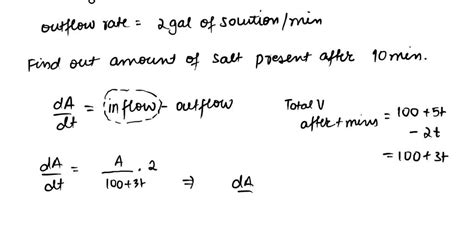 outflow rate = 2 gal of solution/min
Find out amount of salt present after 10 min.
dA/dt = inflow - outflow
Total V after t mins = 100 + 5t - 2t
= 100 + 3t
dA/dt = A/(100+3t) · 2 ⇒ dA